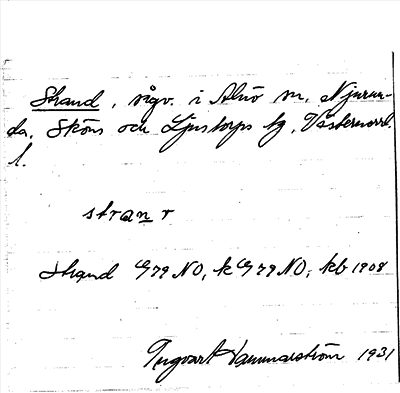 Strand, sågv. i Alnö sn, Njurun-
da, Sköns och Ljustorps tg, Västernorrl.
l.
stran r
strand G79 NO, k G79 NO, kb 1908
Ingvart Hammarström 1931